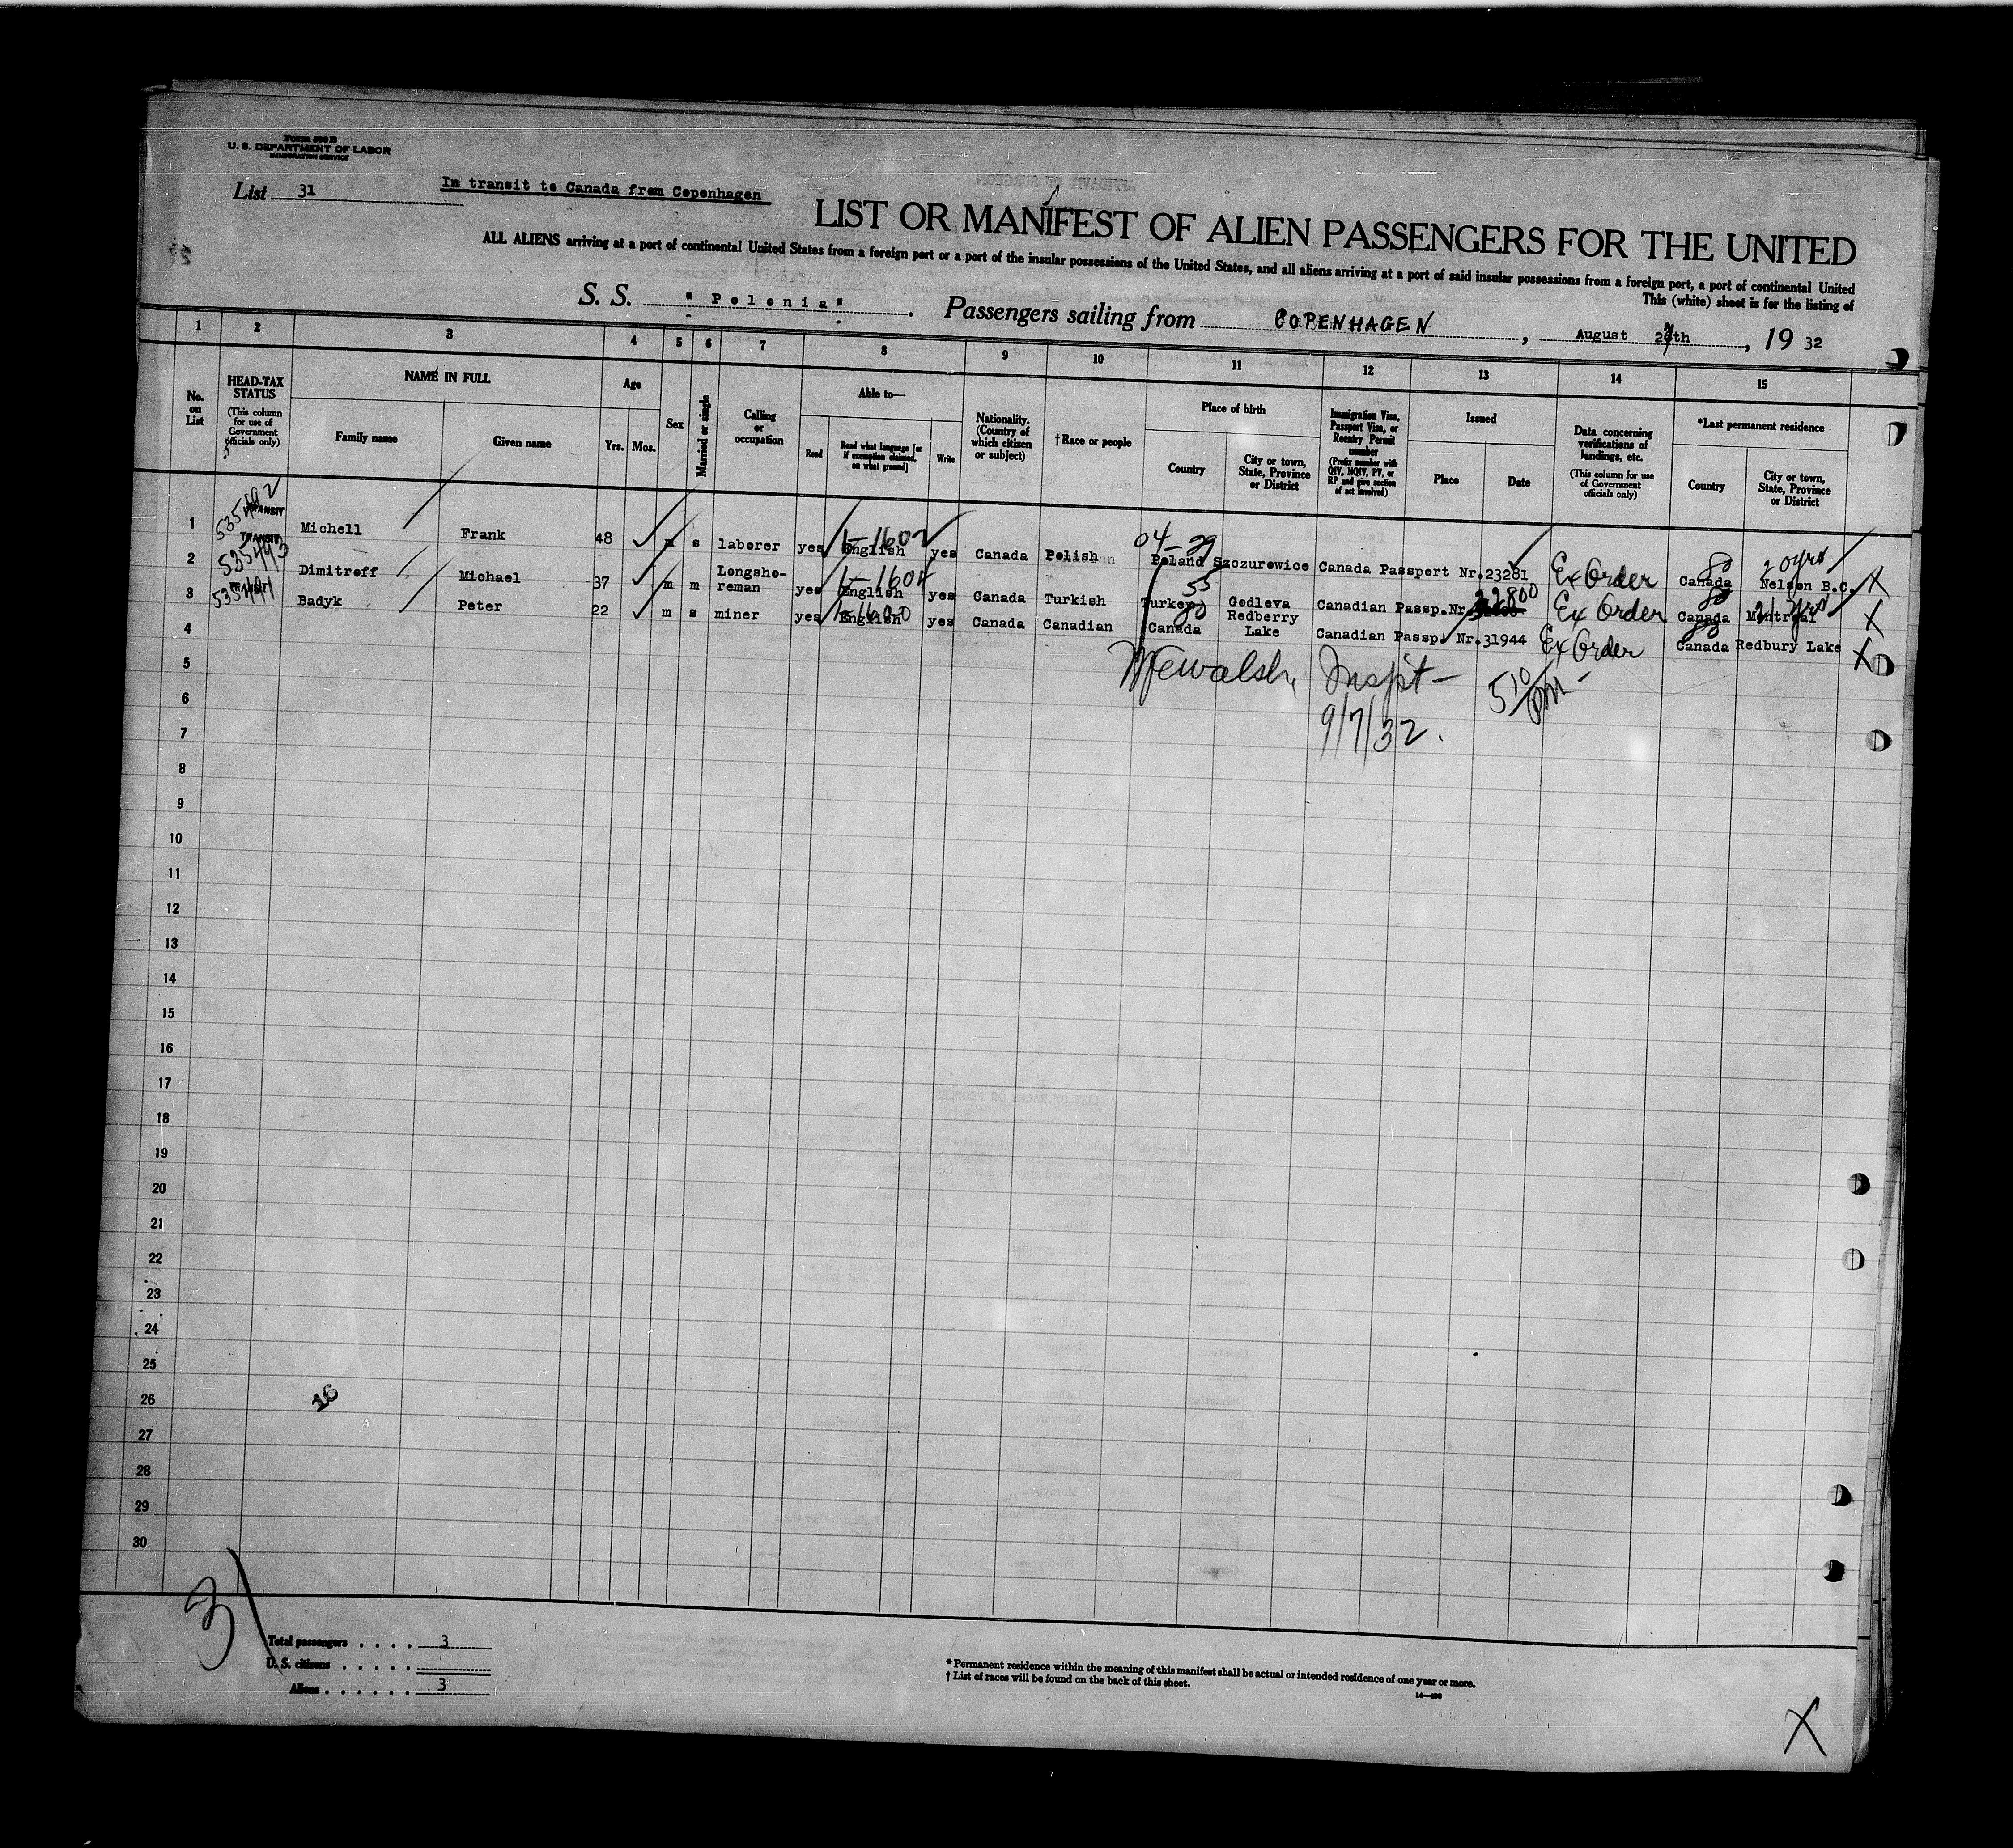 Form 500 B
U. S. DEPARTMENT OF LABOR
IMMIGRATION SERVICE
List 31
In transit to Canada from Copenhagen
LIST OR MANIFEST OF ALIEN PASSENGERS FOR THE UNITED
ALL ALIENS arriving at a port of continental United States from a foreign port or a port of the insular possessions of the United States, and all aliens arriving at a port of said insular possessions from a foreign port, a port of continental United
This (white) sheet is for the listing of
S. S. "Polonia" . Passengers sailing from COPENHAGEN , August 27th , 19 32
1 2 3 4 5 6 7 8 9 10 11 12 13 14 15
No. on List
HEAD-TAX STATUS
(This column for use of Government officials only)
NAME IN FULL
Family name
Given name
Age
Yrs. Mos.
Sex
Married or single
Calling or occupation
Able to—
Read
Read what language [or if exemption claimed, on what ground]
Write
Nationality. (Country of which citizen or subject)
†Race or people
Place of birth
Country
City or town, State, Province or District
Immigration Visa, Passport Visa, or Reentry Permit number
(Prefix number with QIV, NQIV, PV, or RP and give section of act involved)
Issued
Place
Date
Data concerning verifications of landings, etc.
(This column for use of Government officials only)
*Last permanent residence
Country
City or town, State, Province or District
535492 TRANSIT
1 Michell Frank 48 m s laborer yes English yes Canada Polish Poland Szczurowice Canada Passport Nr.23281 Ex Order Canada Nelson B.C. X
1-1602 04-29 80 20yrs
535493 TRANSIT
2 Dimitroff Michael 37 m m Longsho-
reman yes English yes Canada Turkish Turkey Godleva Canadian Passp.Nr. 22800 Ex Order Canada Montreal X
1-1604 55 80 21yrs
TRANSIT
3 Badyk Peter 22 m s miner yes English yes Canada Canadian Canada Redberry
Lake Canadian Passp. Nr.31944 Ex Order Canada Redbury Lake X
80 80
4
Inspt- 510/pm-
5
6
9/7/32.
7
8
9
10
11
12
13
14
15
16
17
18
19
20
21
22
23
24
25
26
16
27
28
29
30
3
Total passengers . . . . 3
U. S. citizens . . . . .
Aliens . . . . . . 3
* Permanent residence within the meaning of this manifest shall be actual or intended residence of one year or more.
† List of races will be found on the back of this sheet.
14—490
X